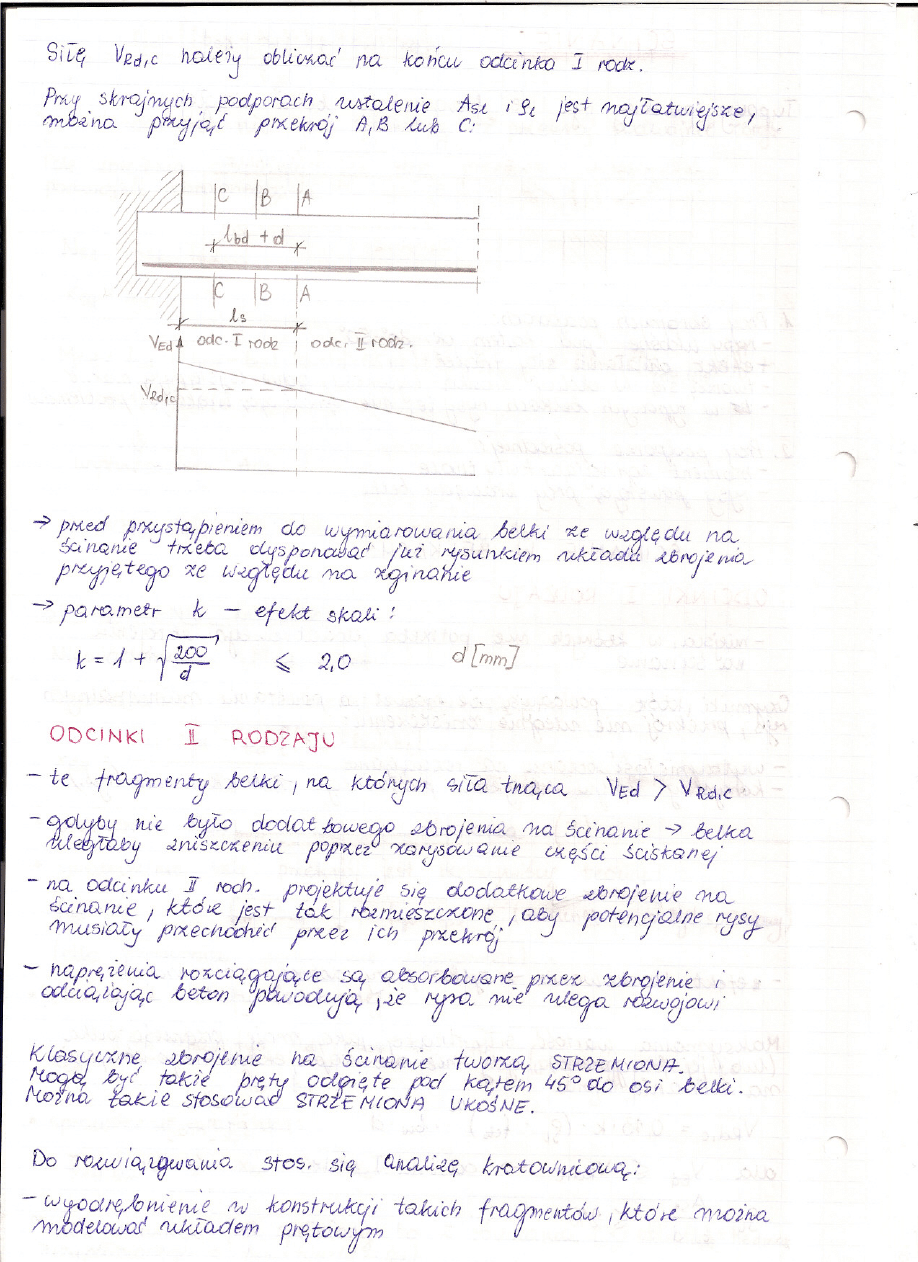 Siłę VRd,c należy obliczać na końcu odcinka I rodz.
Przy skrajnych podporach ustalenie Asl i ρl jest najłatwiejsze,
można przyjąć przekrój A,B lub C:
C B A
lbd + d
C B A
ls
VEd odc. I rodz odc. II rodz.
VRd,c
→ przed przystąpieniem do wymiarowania belki ze względu na
ścinanie trzeba dysponować już rysunkiem układu zbrojenia
przyjętego ze względu na zginanie
→ parametr k – efekt skali:
k = 1 + √(200/d) ⩽ 2,0 d [mm]
ODCINKI II RODZAJU
– te fragmenty belki, na których siła tnąca VEd > VRd,c
– gdyby nie było dodatkowego zbrojenia na ścinanie → belka
uległaby zniszczeniu poprzez zarysowanie części ściskanej
– na odcinku II rodz. projektuje się dodatkowe zbrojenie na
ścinanie, które jest tak rozmieszczone, aby potencjalne rysy
musiały przechodzić przez ich przekrój
– naprężenia rozciągające są absorbowane przez zbrojenie i
odciążając beton powodują, że rysa nie ulega rozwojowi
Klasyczne zbrojenie na ścinanie tworzą STRZEMIONA.
Mogą być także pręty odgięte pod kątem 45° do osi belki.
Można także stosować STRZEMIONA UKOŚNE.
Do rozwiązywania stos. się analizę kratownicową:
– wyodrębnienie w konstrukcji takich fragmentów, które można
modelować układem prętowym